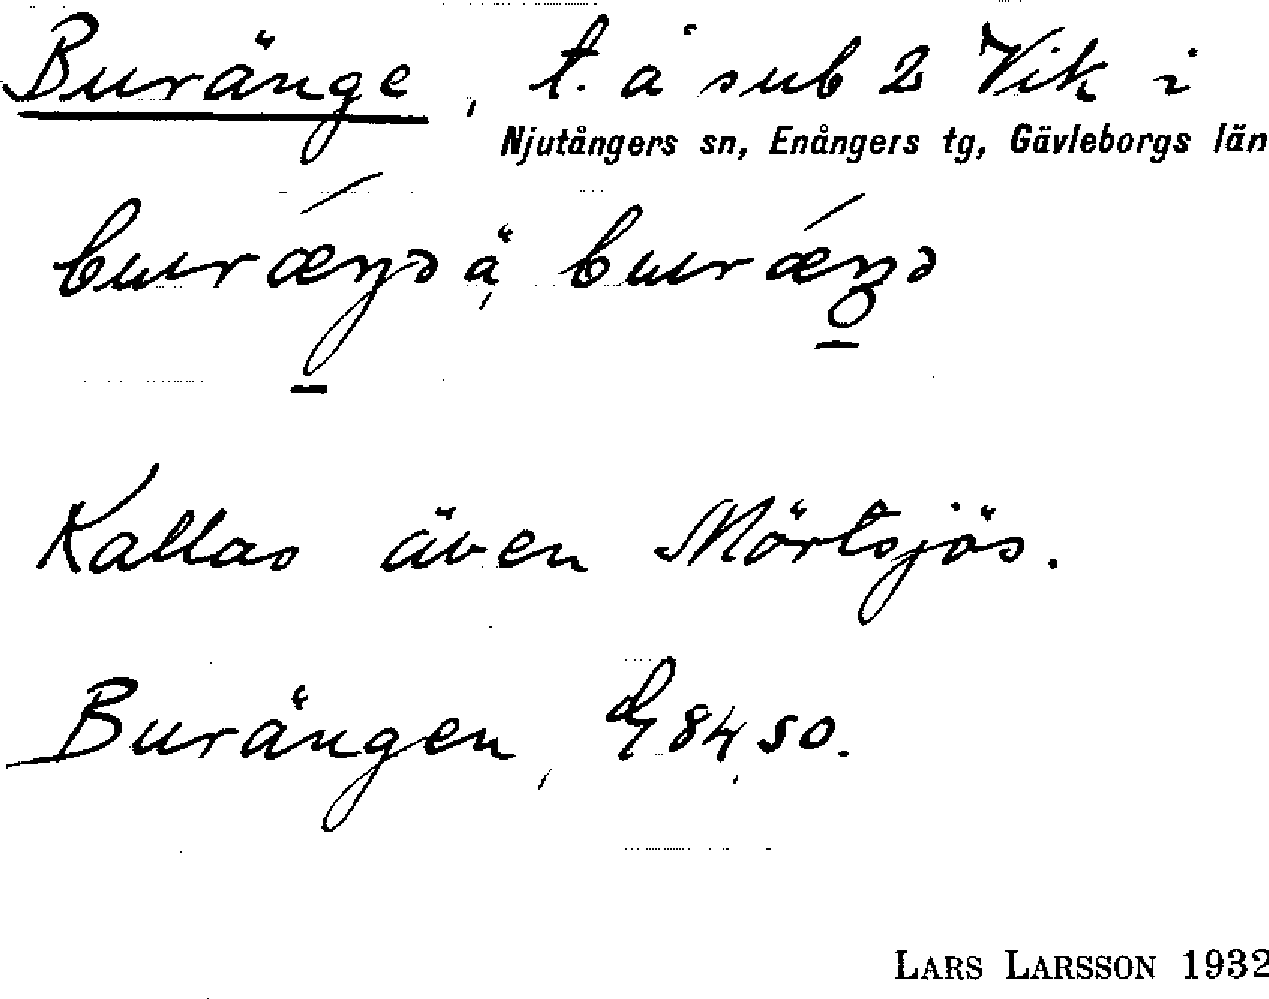 Buränge, t. å sub 2 Vik i
Njutångers sn, Enångers tg, Gävleborgs län
buræŋə ä, buræŋə
Kallas även Mörtsjös.
Burängen, 84, 50.
LARS LARSSON 1932